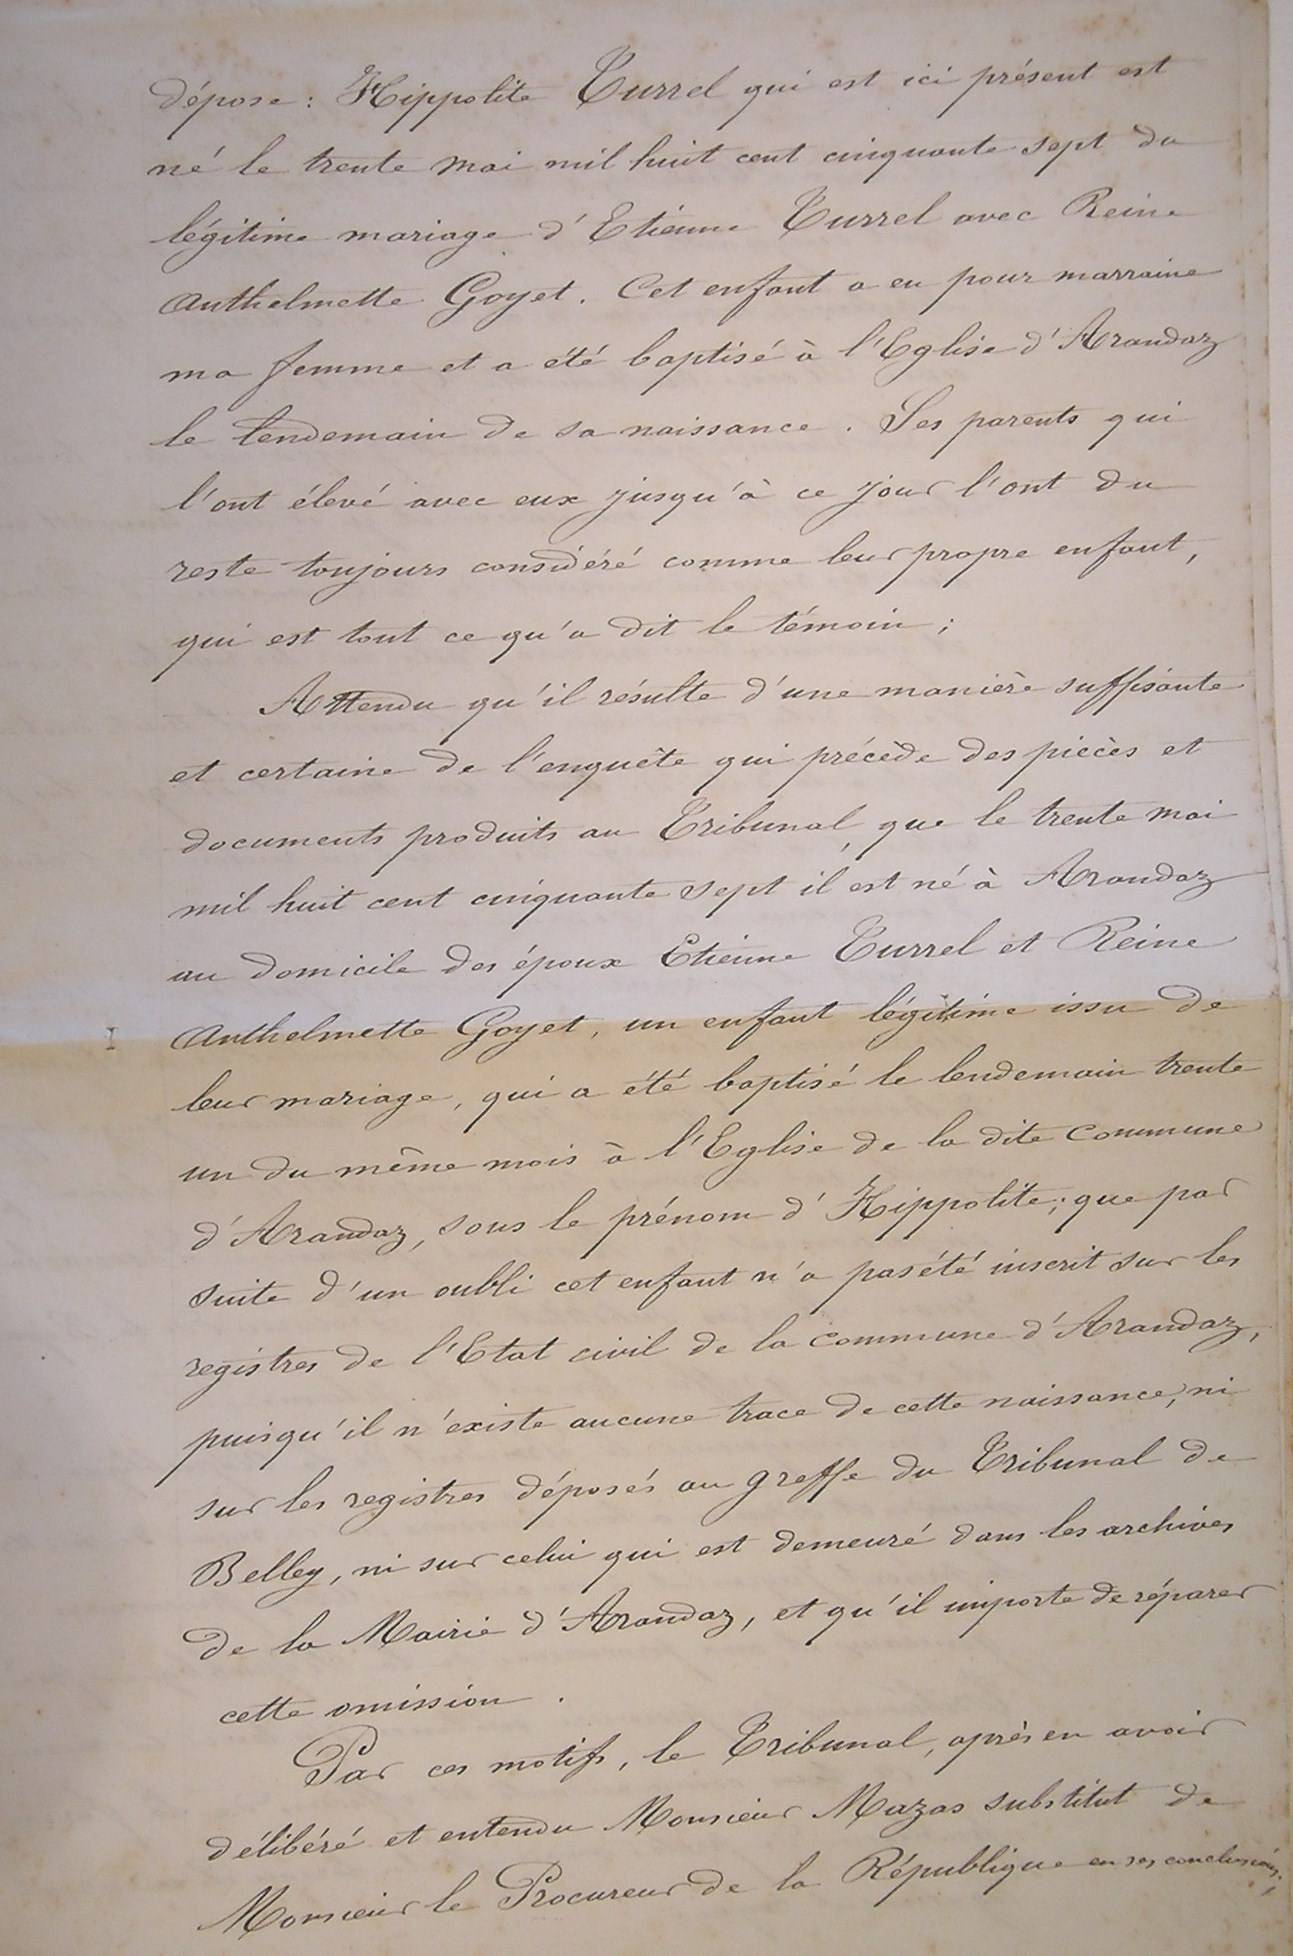 dépose : Hippolite Turrel qui est ici présent est
né le trente mai mil huit cent cinquante sept du
légitime mariage d'Etienne Turrel avec Reine
Anthelmette Goyet. Cet enfant a eu pour marraine
ma femme et a été baptisé à l'Eglise d'Arandaz
le lendemain de sa naissance. Ses parents qui
l'ont élevé avec eux jusqu'à ce jour l'ont du
reste toujours considéré comme leur propre enfant,
qui est tout ce qu'a dit le témoin ;
Attendu qu'il résulte d'une manière suffisante
et certaine de l'enquête qui précède des pièces et
documents produits au Tribunal, que le trente mai
mil huit cent cinquante sept il est né à Arandaz
au domicile des époux Etienne Turrel et Reine
Anthelmette Goyet, un enfant légitime issu de
leur mariage, qui a été baptisé le lendemain trente
un du même mois à l'Eglise de la dite Commune
d'Arandaz, sous le prénom d'Hippolite ; que par
suite d'un oubli cet enfant n'a pas été inscrit sur les
registres de l'Etat civil de la commune d'Arandaz,
puisqu'il n'existe aucune trace de cette naissance, ni
sur les registres déposés au greffe du Tribunal de
Belley, ni sur celui qui est demeuré dans les archives
de la Mairie d'Arandaz, et qu'il importe de réparer
cette omission.
Par ces motifs, le Tribunal, après en avoir
délibéré et entendu Monsieur Mazas substitut de
Monsieur le Procureur de la République en ses conclusions,